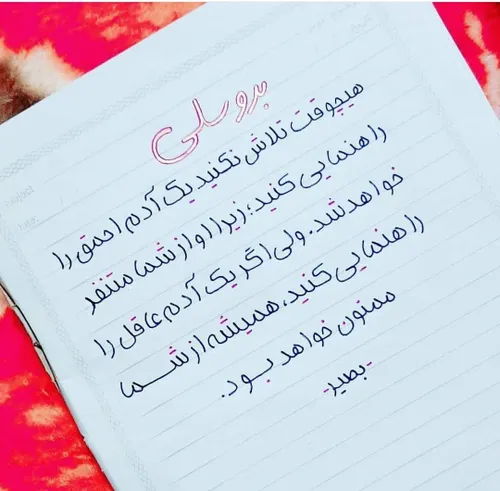 بروسلی
هیچوقت تلاش نکنید یک آدم احمق را
راهنمایی کنید؛ زیرا او از شما متنفر
خواهد شد. ولی اگر یک آدم عاقل را
راهنمایی کنید، همیشه از شما
ممنون خواهد بود.
-بصیر-